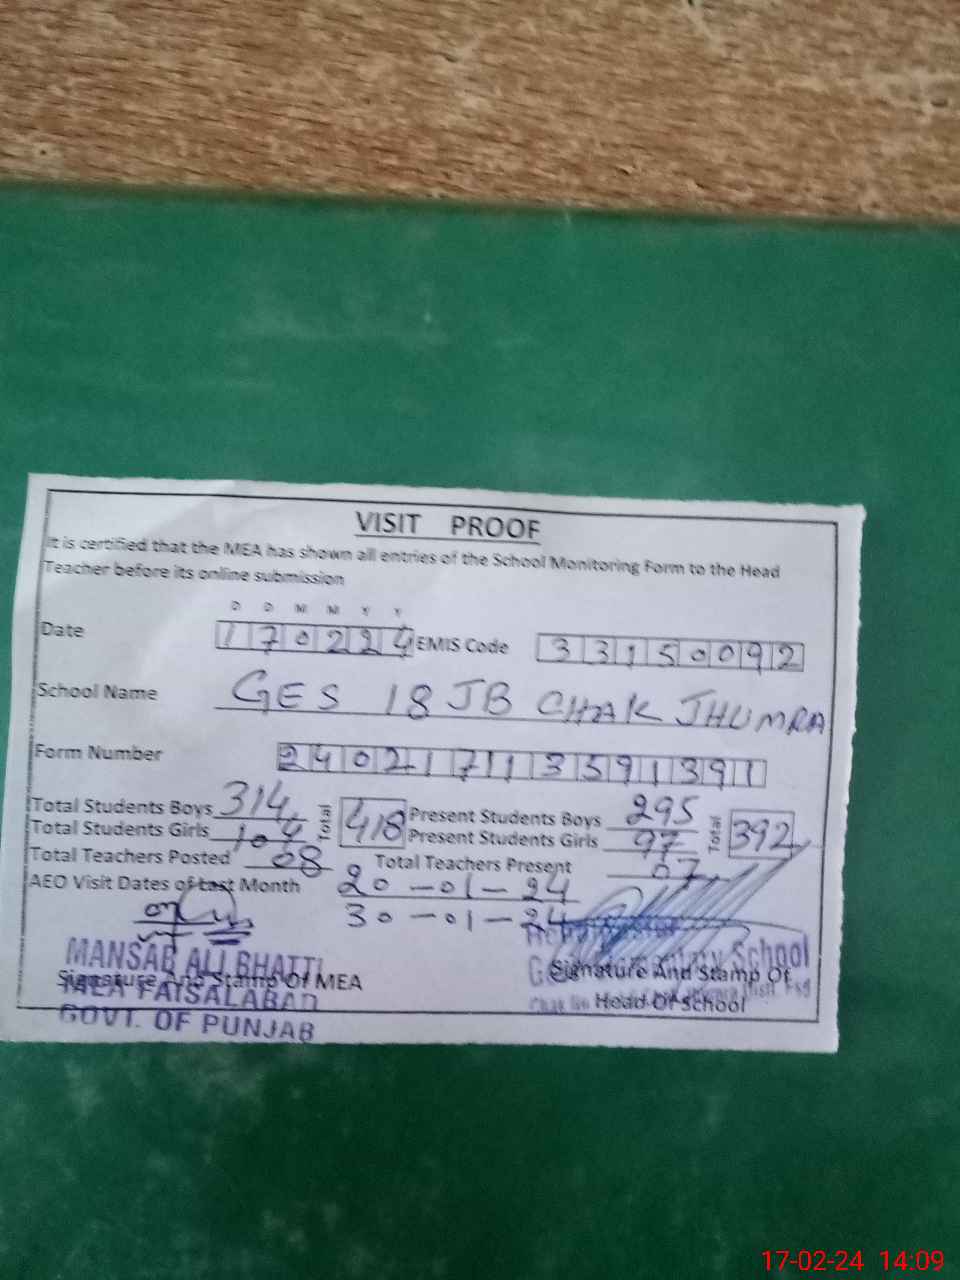 VISIT PROOF
It is certified that the MEA has shown all entries of the School Monitoring Form to the Head
Teacher before its online submission
D D M M Y Y
Date 170224 EMIS Code 33150092
School Name GES 18 JB CHAK JHUMRA
Form Number 240217113591391
Total Students Boys 314 Total 418 Present Students Boys 295 Total 392
Total Students Girls 104 Present Students Girls 97
Total Teachers Posted 08 Total Teachers Present 07
AEO Visit Dates of Last Month 20-01-24
30-01-24
MANSAB ALI BHATTI
Signature And Stamp Of MEA
MEA FAISALABAD
GOVT. OF PUNJAB
School
Signature And Stamp Of
Head Of School
17-02-24 14:09